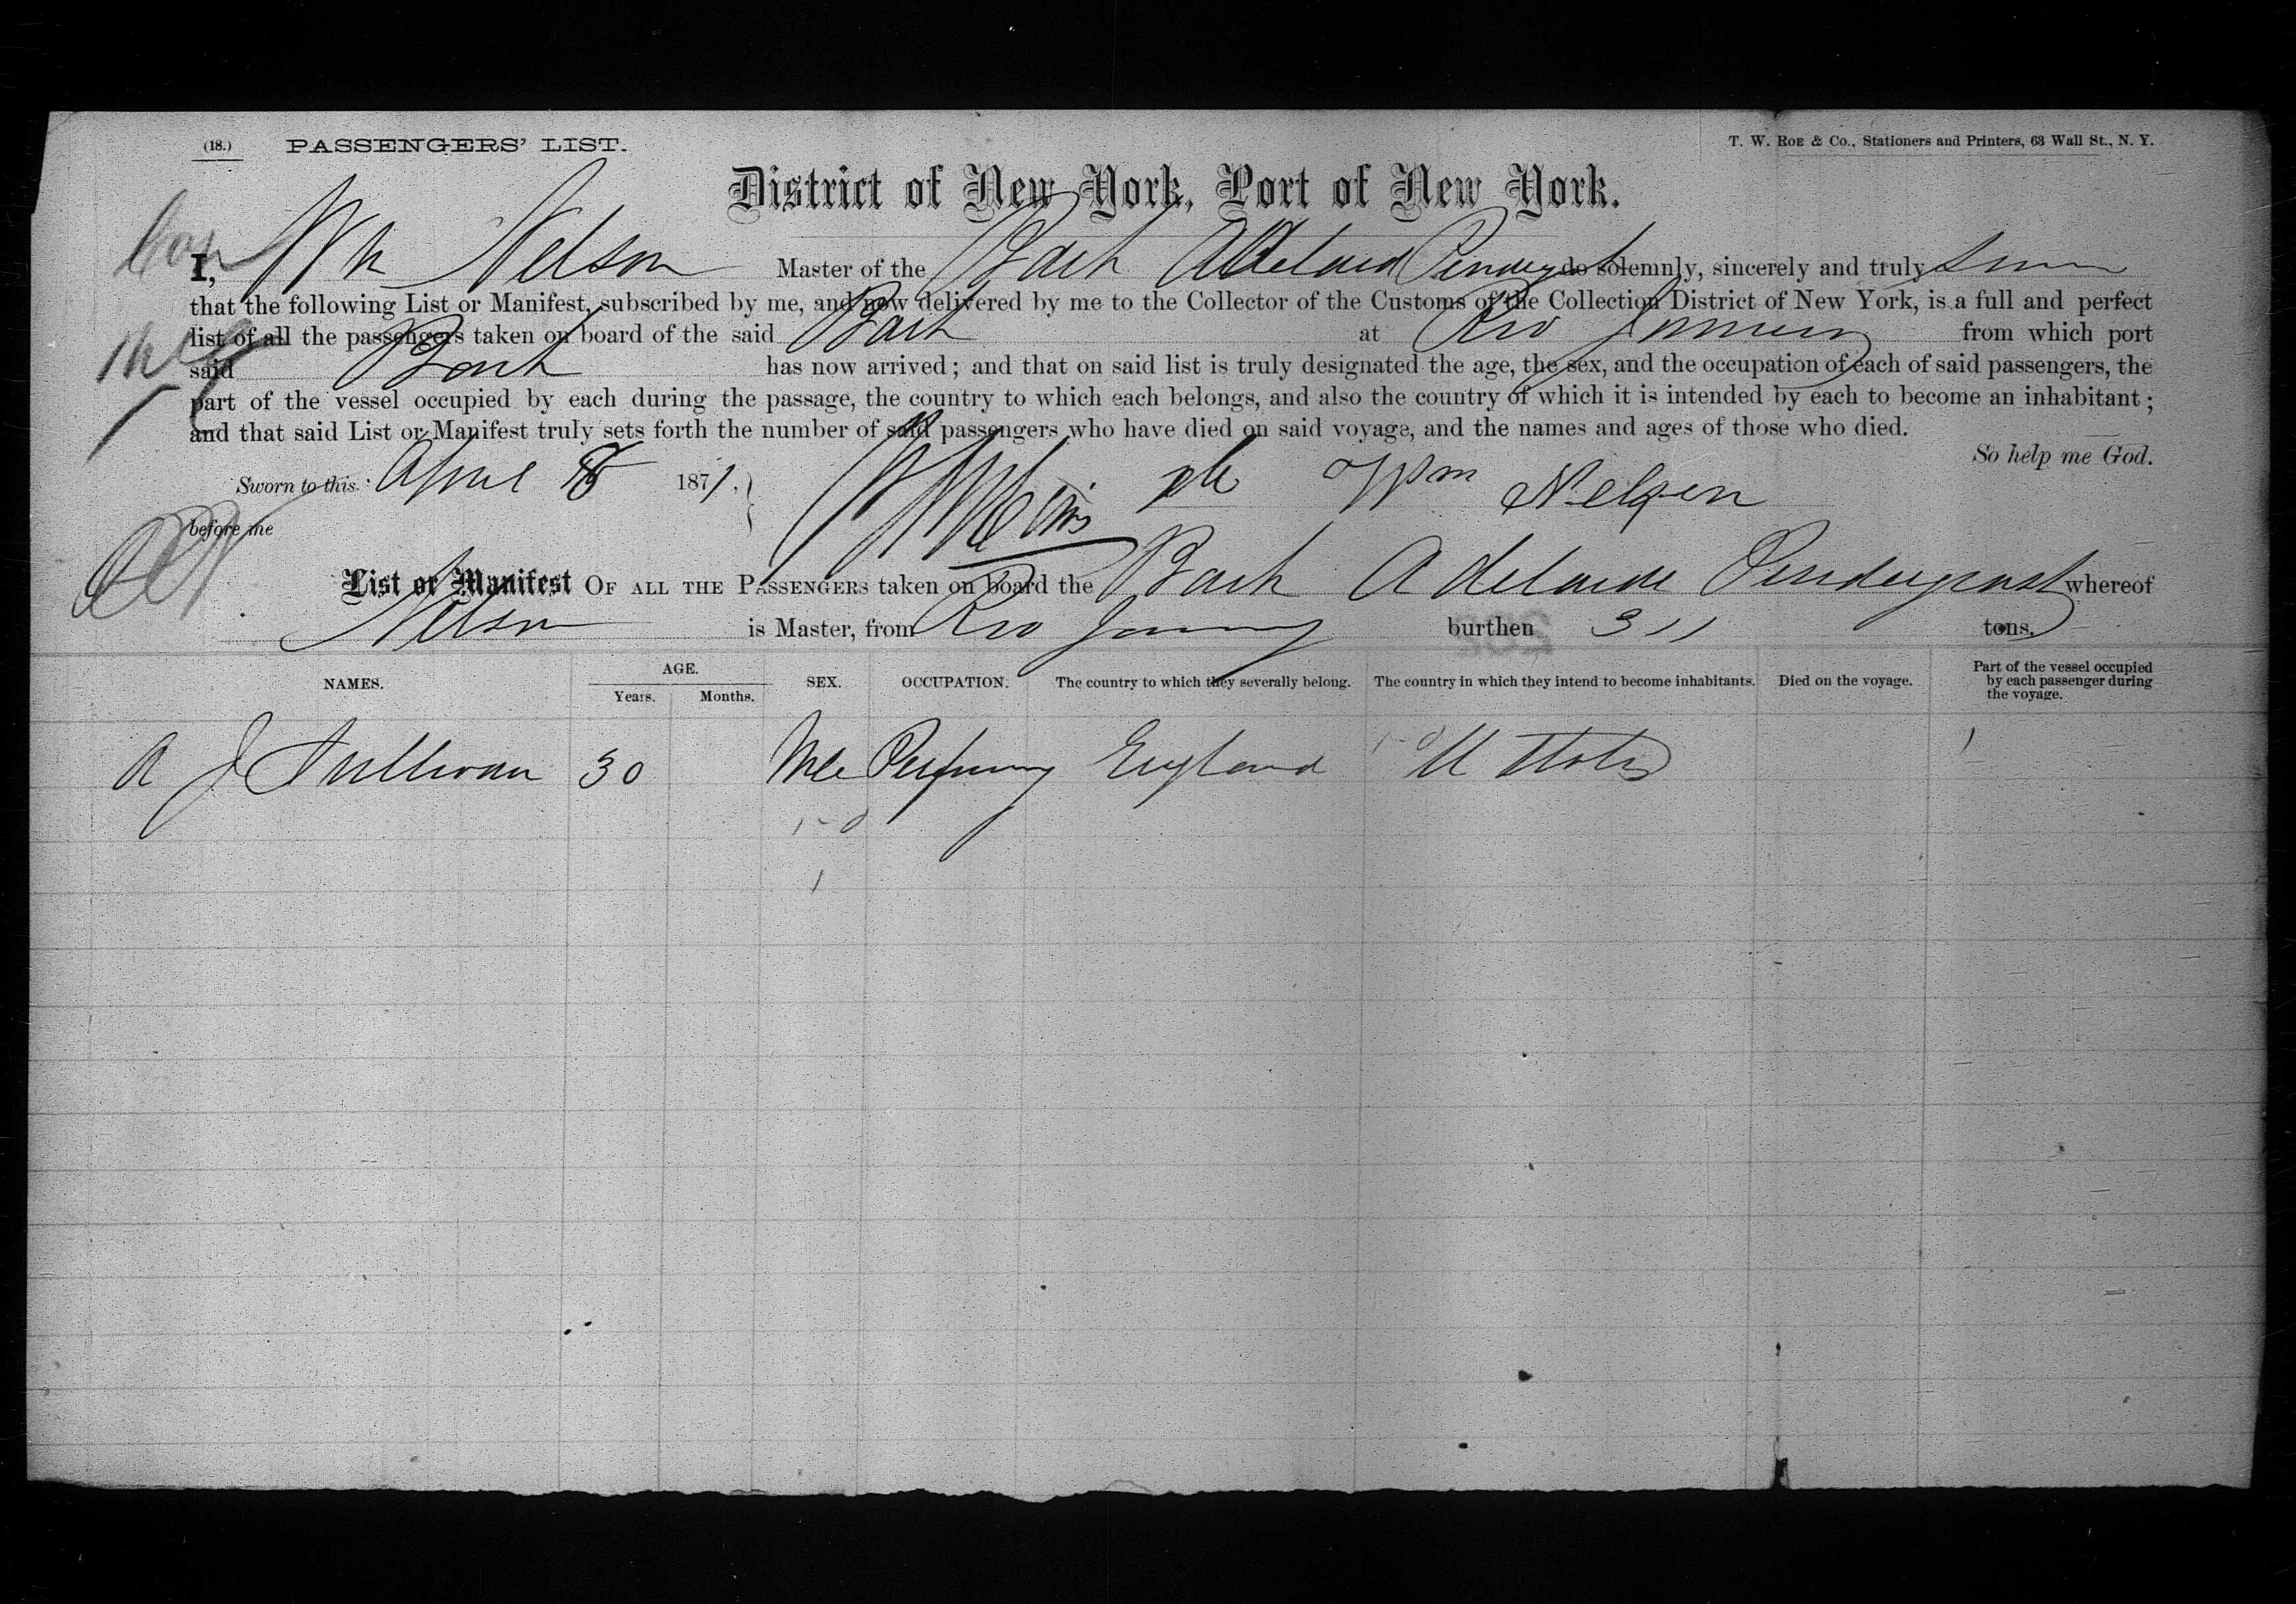 (18.) PASSENGERS' LIST. T. W. ROE & CO., Stationers and Printers, 63 Wall St., N. Y.
District of New York, Port of New York.
I, Wm Nelson Master of the Bark Adelaid Pendergast do solemnly, sincerely and truly
that the following List or Manifest, subscribed by me, and now delivered by me to the Collector of the Customs of the Collection District of New York, is a full and perfect
list of all the passengers taken on board of the said Bark at Rio from which port
said Bark has now arrived; and that on said list is truly designated the age, the sex, and the occupation of each of said passengers, the
part of the vessel occupied by each during the passage, the country to which each belongs, and also the country of which it is intended by each to become an inhabitant;
and that said List or Manifest truly sets forth the number of said passengers who have died on said voyage, and the names and ages of those who died.
So help me God.
Sworn to this April 8 1871. Wm Nelson
before me
List or Manifest OF ALL THE PASSENGERS taken on board the Bark Adelaide Pendergrast whereof
Nelson is Master, from Rio burthen 311 tons.
NAMES. AGE. Years. Months. SEX. OCCUPATION. The country to which they severally belong. The country in which they intend to become inhabitants. Died on the voyage. Part of the vessel occupied by each passenger during the voyage.
A J Sullivan 30 Mle England U States 1
1-0
1